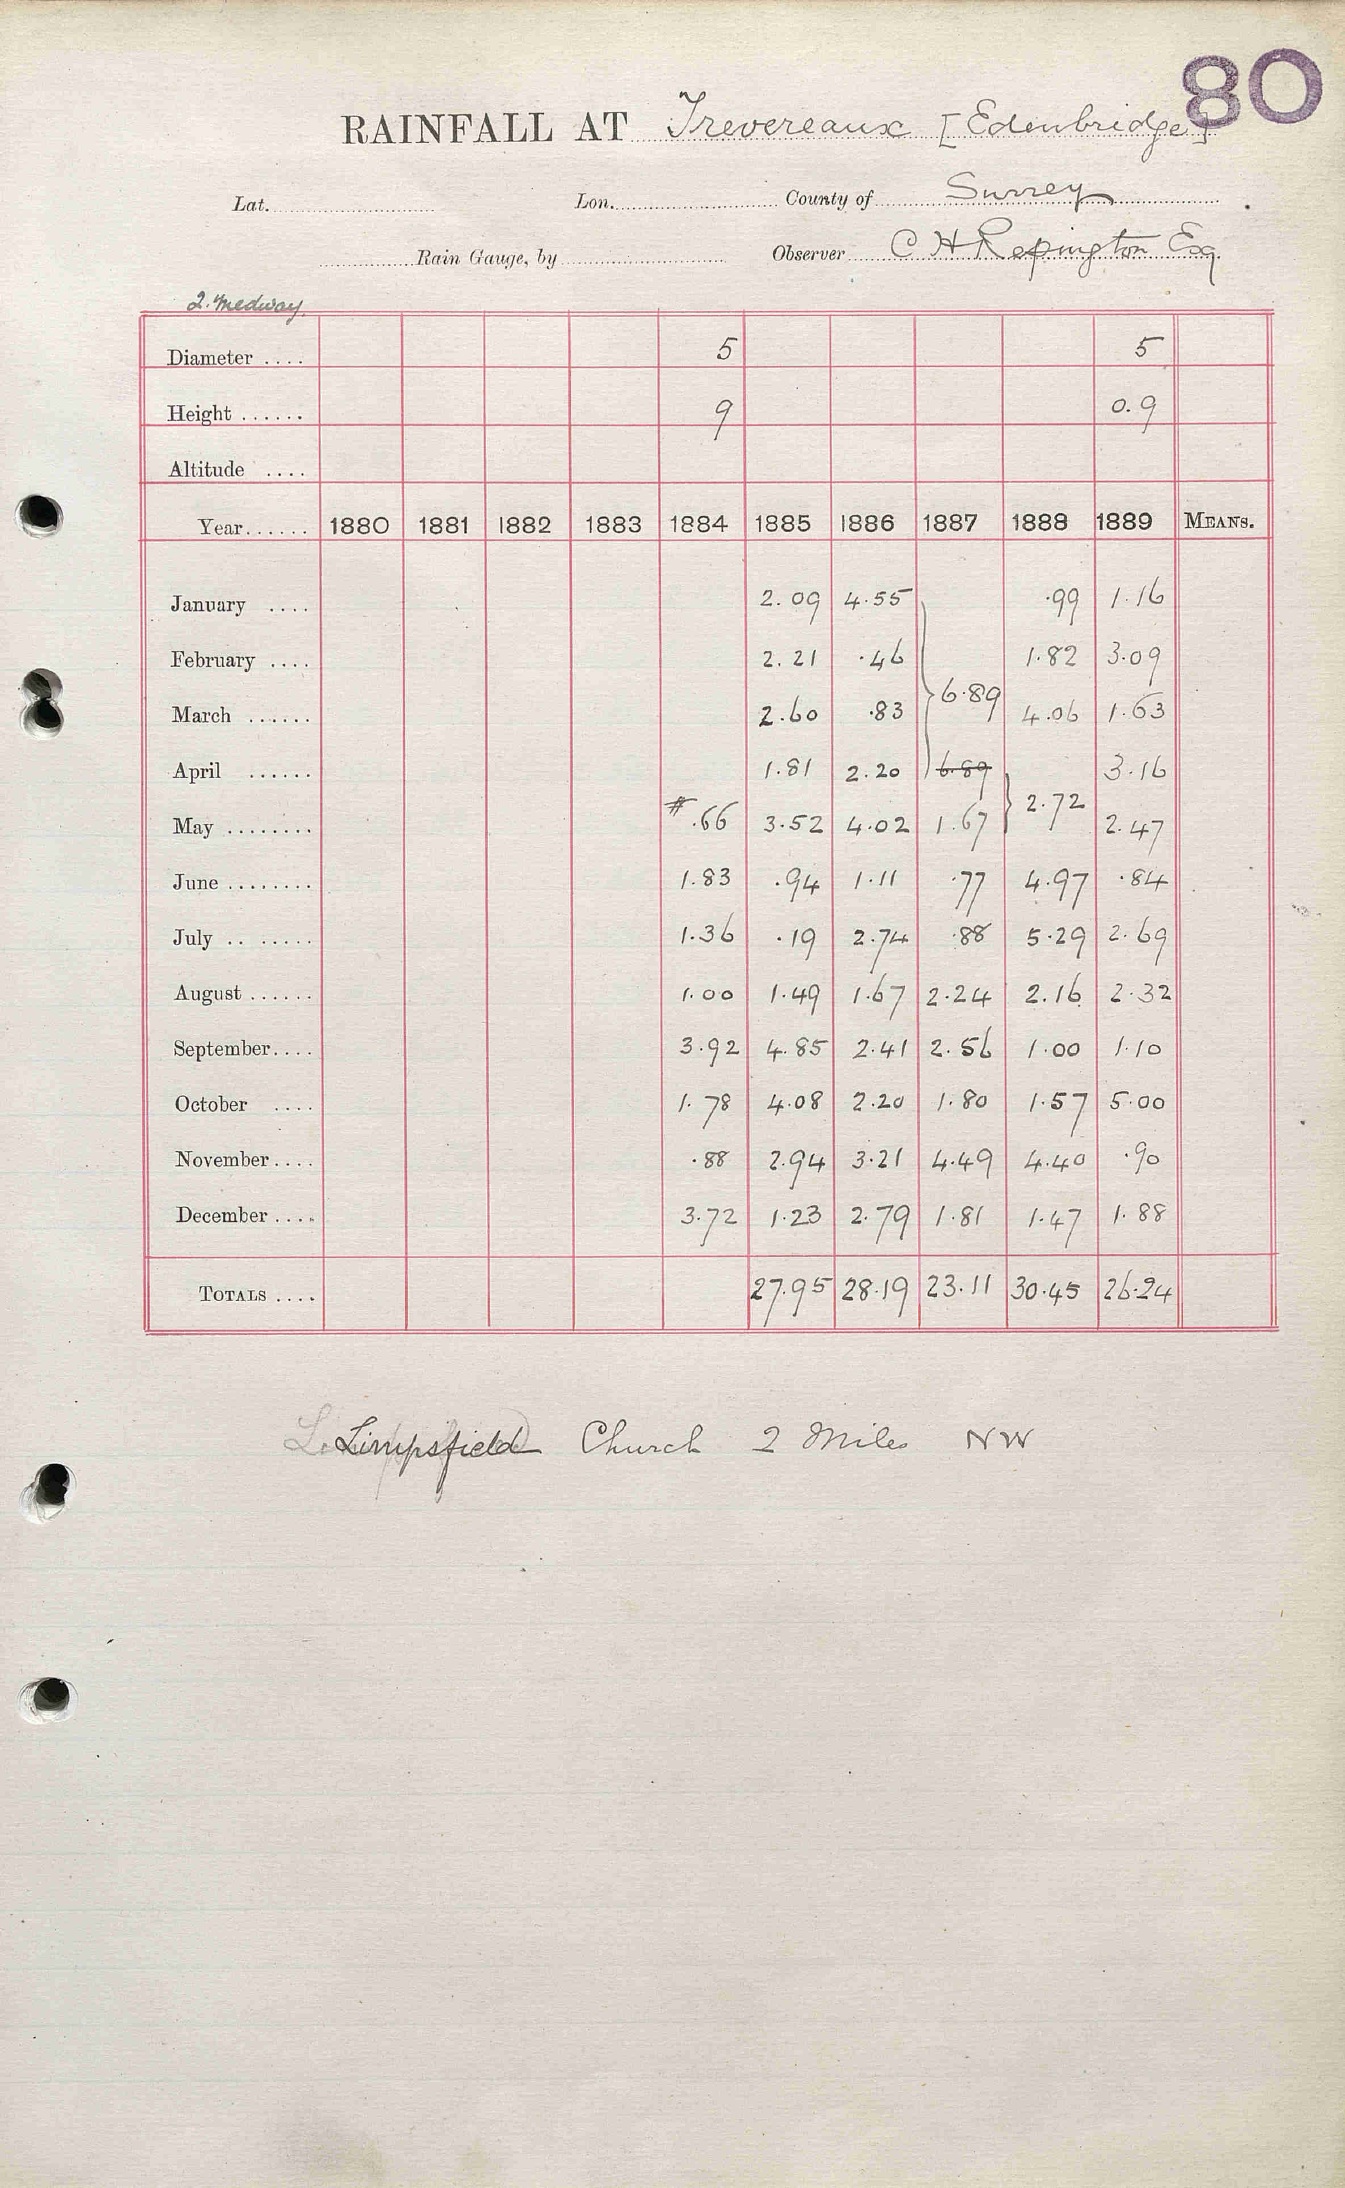 80
RAINFALL AT Trevereaux [Edenbridge]
Lat. Lon. County of Surrey
Rain Gauge, by Observer C H Repington Esq
2. Medway
Diameter .... 5 5
Height ...... 9 0.9
Altitude ....
Year...... 1880 1881 1882 1883 1884 1885 1886 1887 1888 1889 MEANS.
January .... 2.09 4.55 .99 1.16
February .... 2.21 .46 1.82 3.09
March ...... 2.60 .83 6.89 4.06 1.63
April ...... 1.81 2.20 6.89 3.16
May ........ #.66 3.52 4.02 1.67 2.72 2.47
June ........ 1.83 .94 1.11 .77 4.97 .84
July .. ..... 1.36 .19 2.74 .88 5.29 2.69
August ...... 1.00 1.49 1.67 2.24 2.16 2.32
September.... 3.92 4.85 2.41 2.56 1.00 1.10
October .... 1.78 4.08 2.20 1.80 1.57 5.00
November.... .88 2.94 3.21 4.49 4.40 .90
December.... 3.72 1.23 2.79 1.81 1.47 1.88
TOTALS .... 27.95 28.19 23.11 30.45 26.24
Limpsfield Church 2 Miles NW